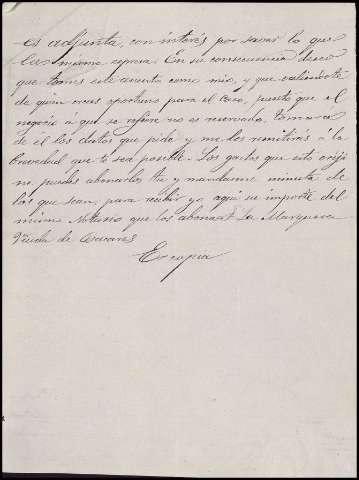 es adjunta, con interés por saber lo que
la misma expresa. En su consecuencia deseo
que tomes este asunto como mio, y que valiéndote
de quien creas oportuno para el caso, puesto que el
negocio á que se refiere no es reservado, tomarás
de él los datos que pide y me los remitirás á la
brevedad que te sea posible. Los gastos que esto exija
no puedes abonarlos tu y mandarme minuta de
los que sean, para recibir yo aqui su importe del
mismo Notario que los abonará La Marquesa
Viuda de
Es copia